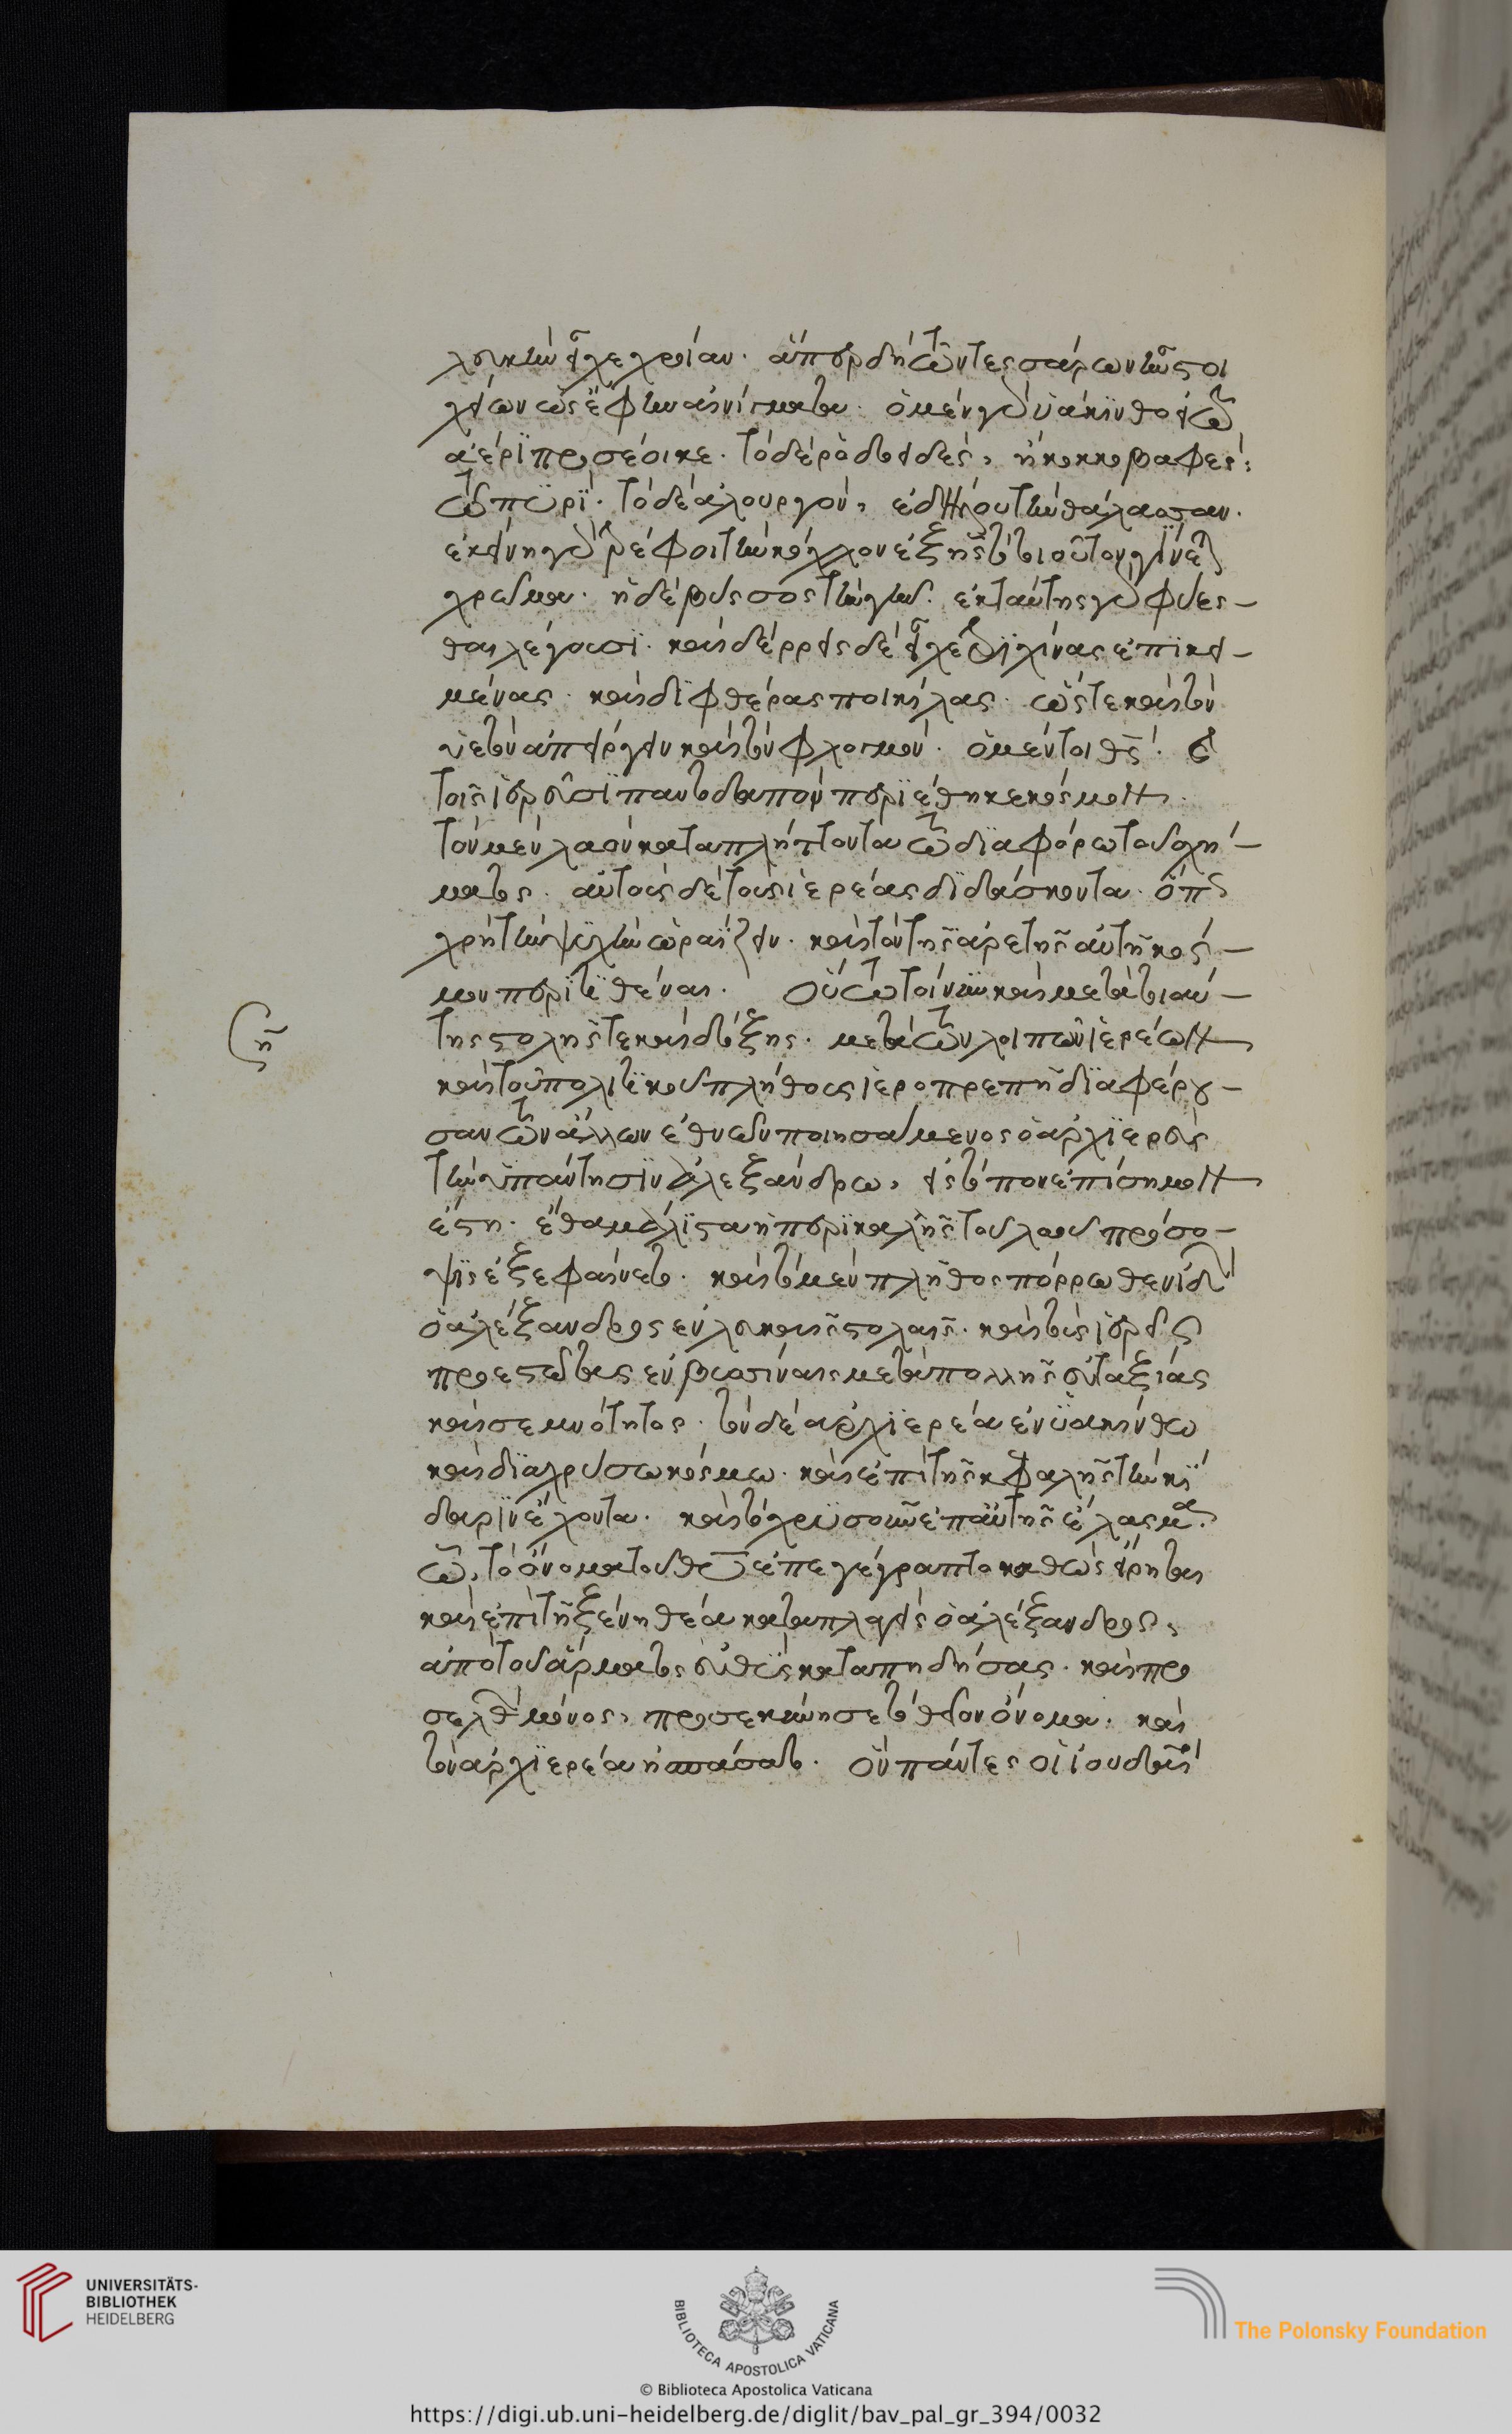 λευκὴν εἶχε χροίαν. ἅπερ δὴ τῶν τεσσάρων ἦν στοι
χείων ὡς ἔφην αἰνίγματα. ὁ μὲν γὰρ ὑάκινθος τῶ
ἀέρι προσέοικε. τὸ δὲ ῥοδοειδὲς, ἢ κοκκοβαφὲς,
τῶ πυρί. τὸ δὲ ἁλουργὸν, ἐδήλου τὴν θάλασσαν.
ἐκείνη γὰρ τρέφει τὴν κόχλον ἐξ ἧς τὸ τοιοῦτον γίνεται
χρῶμα. ἡ δὲ βύσσος τὴν γῆν. ἐκ ταύτης γὰρ φύεσ-
θαι λέγουσι. καὶ δέρρεις δὲ εἶχε τριχίνας ἐπικει-
μένας. καὶ διφθέρας ποικίλας. ὥστε καὶ τὸν
ὑετὸν ἀπείργειν καὶ τὸν φλογμόν. ὁ μέντοι θς ἐν
τοῖς ἱερεῦσι παντοδαπὸν περιέθηκε κόσμον.
τὸν μὲν λαὸν καταπλήττοντα τῶ διαφόρω τοῦ σχή-
ματος. αὐτοὺς δὲ τοὺς ἱερέας διδάσκοντα. ὅπως
χρὴ τὴν ψυχὴν ὡραΐζειν. καὶ τὸν τῆς ἀρετῆς αὐτῆ κόσ-
μον περιτιθέναι. Οὕτω τοίνυν καὶ μετὰ τοιαύ-
της στολῆς τε καὶ δόξης. μετὰ τῶν λοιπῶν ἱερέων
καὶ τοῦ πολιτικοῦ πλήθους ἱεροπρεπῆ διαφέρου-
σαν τῶν ἄλλων ἐθνῶν ποιησάμενος ὁ ἀρχιερεὺς
τὴν ὑπάντησιν ἀλεξάνδρω, εἰς τόπον ἐπίσημον
ἔστη. ἔνθα μάλιστα ἡ περικαλὴς τοῦ λαοῦ πρόσο-
ψις ἐξεφαίνετο. καὶ τὸ μὲν πλῆθος πόρρωθεν ἰδὼν
ὁ ἀλέξανδρος ἐν λευκαῖς στολαῖς. καὶ τοὺς ἱερεῖς
προεστῶτας ἐν βυσσίναις μετὰ πολλῆς εὐταξίας
καὶ σεμνότητος. τὸν δὲ ἀρχιερέα ἐν ὑακίνθω
καὶ διαχρύσω κόσμω. καὶ ἐπὶ τῆς κεφαλῆς τὴν κί
δαριν ἔχοντα. καὶ τὸ χρυσοῦν ἐπ' αὐτῆς ἔλασμα.
ᾧ, τὸ ὄνομα τοῦ θυ ἐπεγέγραπτο καθὼς εἴρηται
καὶ ἐπὶ τῆ ξένη θέα καταπλαγεὶς ὁ ἀλέξανδρος,
ἀπὸ τοῦ ἅρματος εὐθὺς καταπηδήσας. καὶ προ
σελθὼν μόνος, προσεκύνησε τὸ θεῖον ὄνομα. καὶ
τὸν ἀρχιερέα ἠσπάσατο. οὗ πάντες οἱ ἰουδαῖοι
ση
UNIVERSITÄTS-
BIBLIOTHEK
HEIDELBERG
BIBLIOTECA APOSTOLICA VATICANA
The Polonsky Foundation
© Biblioteca Apostolica Vaticana
https://digi.ub.uni-heidelberg.de/diglit/bav_pal_gr_394/0032